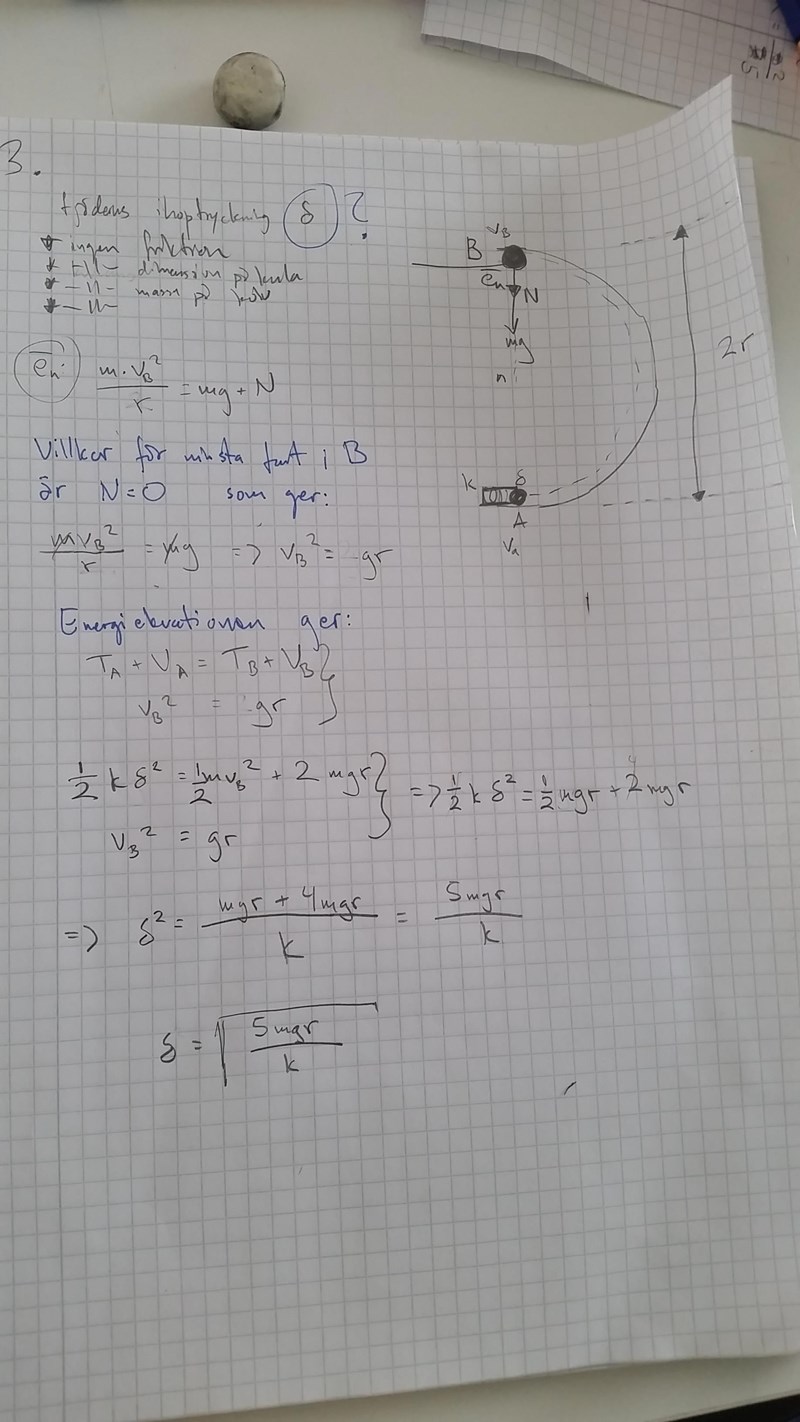 3.
fjäderns ihoptryckning δ ?
* ingen friktion
* -||- dimension på kula
* -||- massa på
* -||-
B
v_B
e_n
N
mg
n
2r
k
δ
A
v_a
e_n: m·v_B²/r = mg + N
Villkor för minsta fart i B
är N=0 som ger:
mv_B²/r = mg => v_B² = gr
Energiekvationen ger:
T_A + V_A = T_B + V_B }
v_B² = gr
1/2 k δ² = 1/2 mv_B² + 2 mgr } => 1/2 k δ² = 1/2 mgr + 2 mgr
v_B² = gr
=> δ² = (mgr + 4mgr)/k = 5mgr/k
δ = √(5mgr/k)